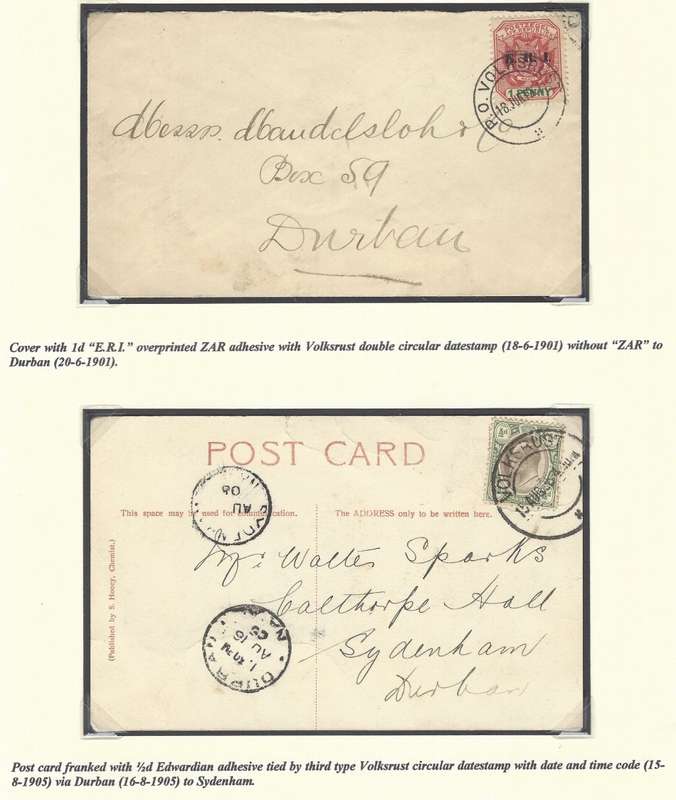 E. R. I.
1 PENNY
P.O. VOLKSRUST
18 JUN
Messrs. Mandelsloh & Co
Box 59
Durban
Cover with 1d “E.R.I.” overprinted ZAR adhesive with Volksrust double circular datestamp (18-6-1901) without “ZAR” to
Durban (20-6-1901).
POST CARD
VOLKSRUST
AU
05
This space may be used for communication.
The ADDRESS only to be written here.
(Published by S. Hoosy, Chemist.)
Mr Walter Sparks
Calthorpe Hall
Sydenham
Durban
DURBAN
NATAL
AU 16
05
Post card franked with ½d Edwardian adhesive tied by third type Volksrust circular datestamp with date and time code (15-
8-1905) via Durban (16-8-1905) to Sydenham.